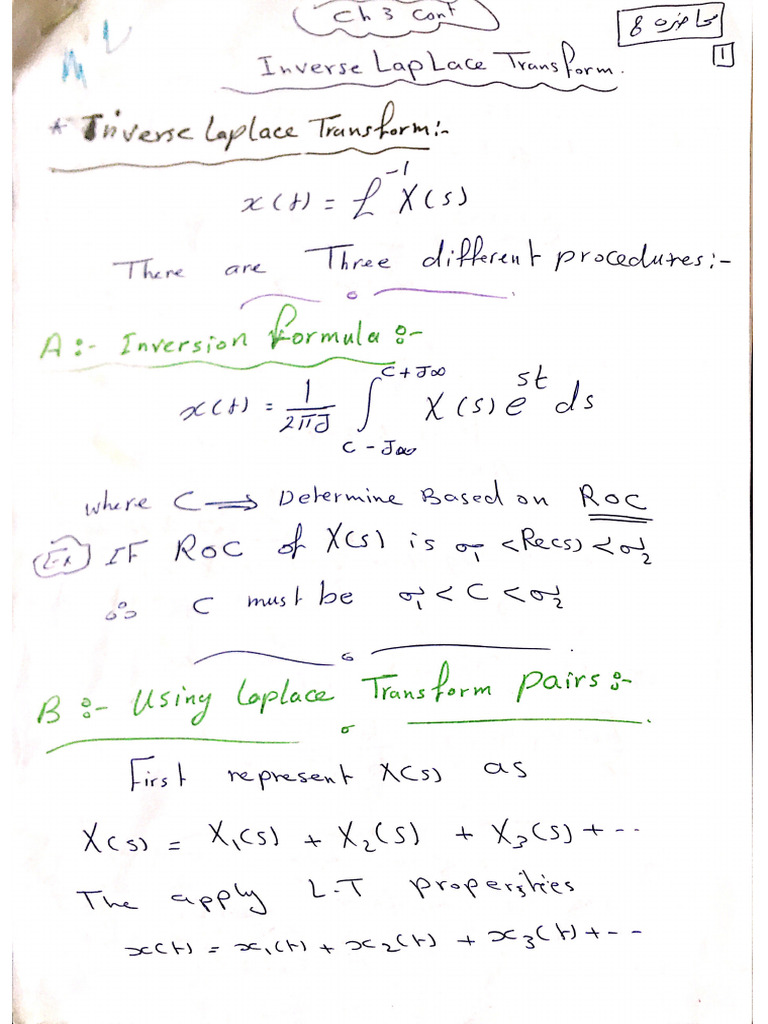 Ch 3 Cont
محاضره 8
1
Inverse Laplace Transform.
* Inverse Laplace Transform:-
x(t) = ℒ⁻¹ X(s)
There are Three different procedures:-
A:- Inversion Formula:-
x(t) = 1/2πJ ∫_{C-J∞}^{C+J∞} X(s) e^{st} ds
where C ⟹ Determine Based on ROC
Ex) IF ROC of X(s) is σ₁ < Re(s) < σ₂
∴ C must be σ₁ < C < σ₂
B:- Using Laplace Transform pairs:-
First represent X(s) as
X(s) = X₁(s) + X₂(s) + X₃(s) + ---
The apply L.T properities
x(t) = x₁(t) + x₂(t) + x₃(t) + ---